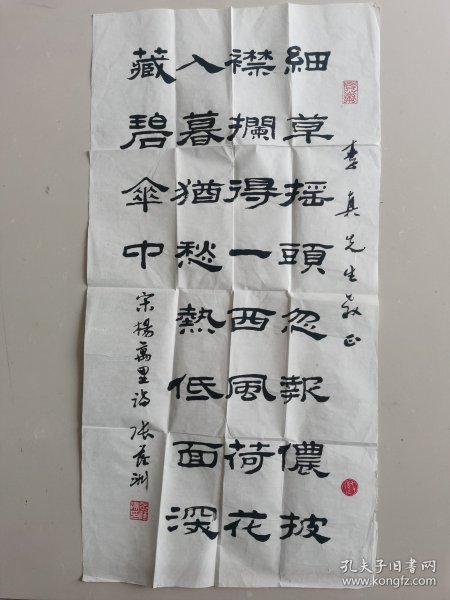 李真先生教正
細草摇頭忽報儂披
襟攔得一西風荷花
入暮猶愁熱低面深
藏碧傘中
宋楊萬里诗 张洲
孔夫子旧书网
www.kongfz.com